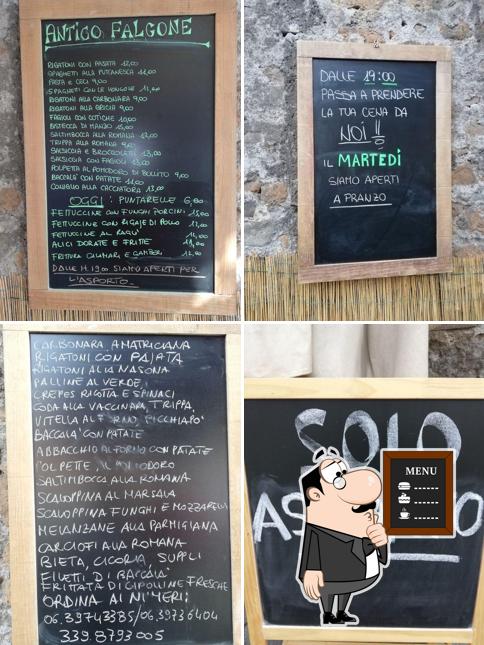 ANTICO FALCONE
RIGATONI CON PAJATA 12,00
SPAGHETTI ALLA PUTTANESCA 11,00
PASTA E CECI 9,00
SPAGHETTI CON LE VONGOLE 11,00
RIGATONI ALLA CARBONARA 9,00
RIGATONI ALLA GRICIA 9,00
FAGIOLI CON COTICHE 10,00
BISTECCA DI MANZO 15,00
SALTIMBOCCA ALLA ROMANA 12,00
TRIPPA ALLA ROMANA 9,00
SALSICCIA E BROCCOLETTI 13,00
SALSICCIA CON FAGIOLI 13,00
POLPETTA AL POMODORO DI BOLLITO 9,00
BACCALA' CON PATATE 11,00
CONIGLIO ALLA CACCIATORA 13,00
OGGI: PUNTARELLE 6,00
FETTUCCINE CON FUNGHI PORCINI 15,00
FETTUCCINE CON RIGAJE DI POLLO 11,00
FETTUCCINE AL RAGU' 11,00
ALICI DORATE E FRITTE 11,00
FRITTURA CALAMARI E GAMBERI 12,00
DALLE H. 19.00 SIAMO APERTI PER
L'ASPORTO.
DALLE 19:00
PASSA A PRENDERE
LA TUA CENA DA
NOI!!
IL MARTEDÌ
SIAMO APERTI
A PRANZO
CARBONARA, AMATRICIANA
RIGATONI CON PAJATA
RIGATONI ALLA NASONA
PALLINE AL VERDE,
CREPES RICOTTA E SPINACI
CODA ALLA VACCINARA, TRIPPA,
VITELLA AL FORNO, PICCHIAPO'
BACCALA' CON PATATE
ABBACCHIO AL FORNO CON PATATE
POLPETTE AL POMODORO
SALTIMBOCCA ALLA ROMANA
SCALOPPINA AL MARSALA
SCALOPPINA FUNGHI E MOZZARELLA
MELANZANE ALLA PARMIGIANA
CARCIOFI ALLA ROMANA
BIETA, CICORIA, SUPPLI
FILETTI DI BACCALA'
FRITTATA DI CIPOLLINE FRESCHE
ORDINA AI NUMERI:
06.39743385/06.39736404
339.8793005
SOLO
MENU